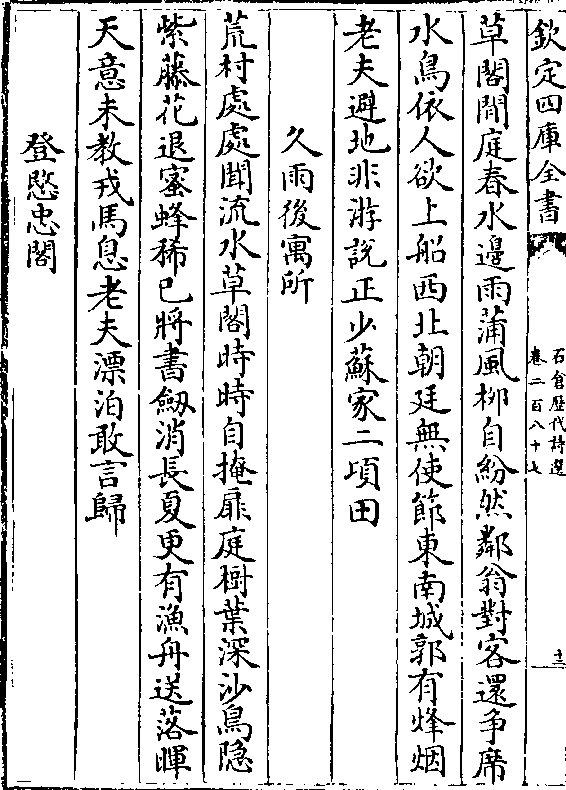 欽定四庫全書
石倉歷代詩選
卷二百八十七
十三
草閣閒庭春水邊雨蒲風柳自紛然鄰翁對客還争席
水鳥依人欲上船西北朝廷無使節東南城郭有烽烟
老夫避地非游說正少蘇家二頃田
久雨後寓所
荒村處處聞流水草閣時時自掩扉庭樹葉深沙鳥隐
紫藤花退蜜蜂稀已將書劒消長夏更有漁舟送落暉
天意未教戎馬息老夫漂泊敢言歸
登愍忠閣